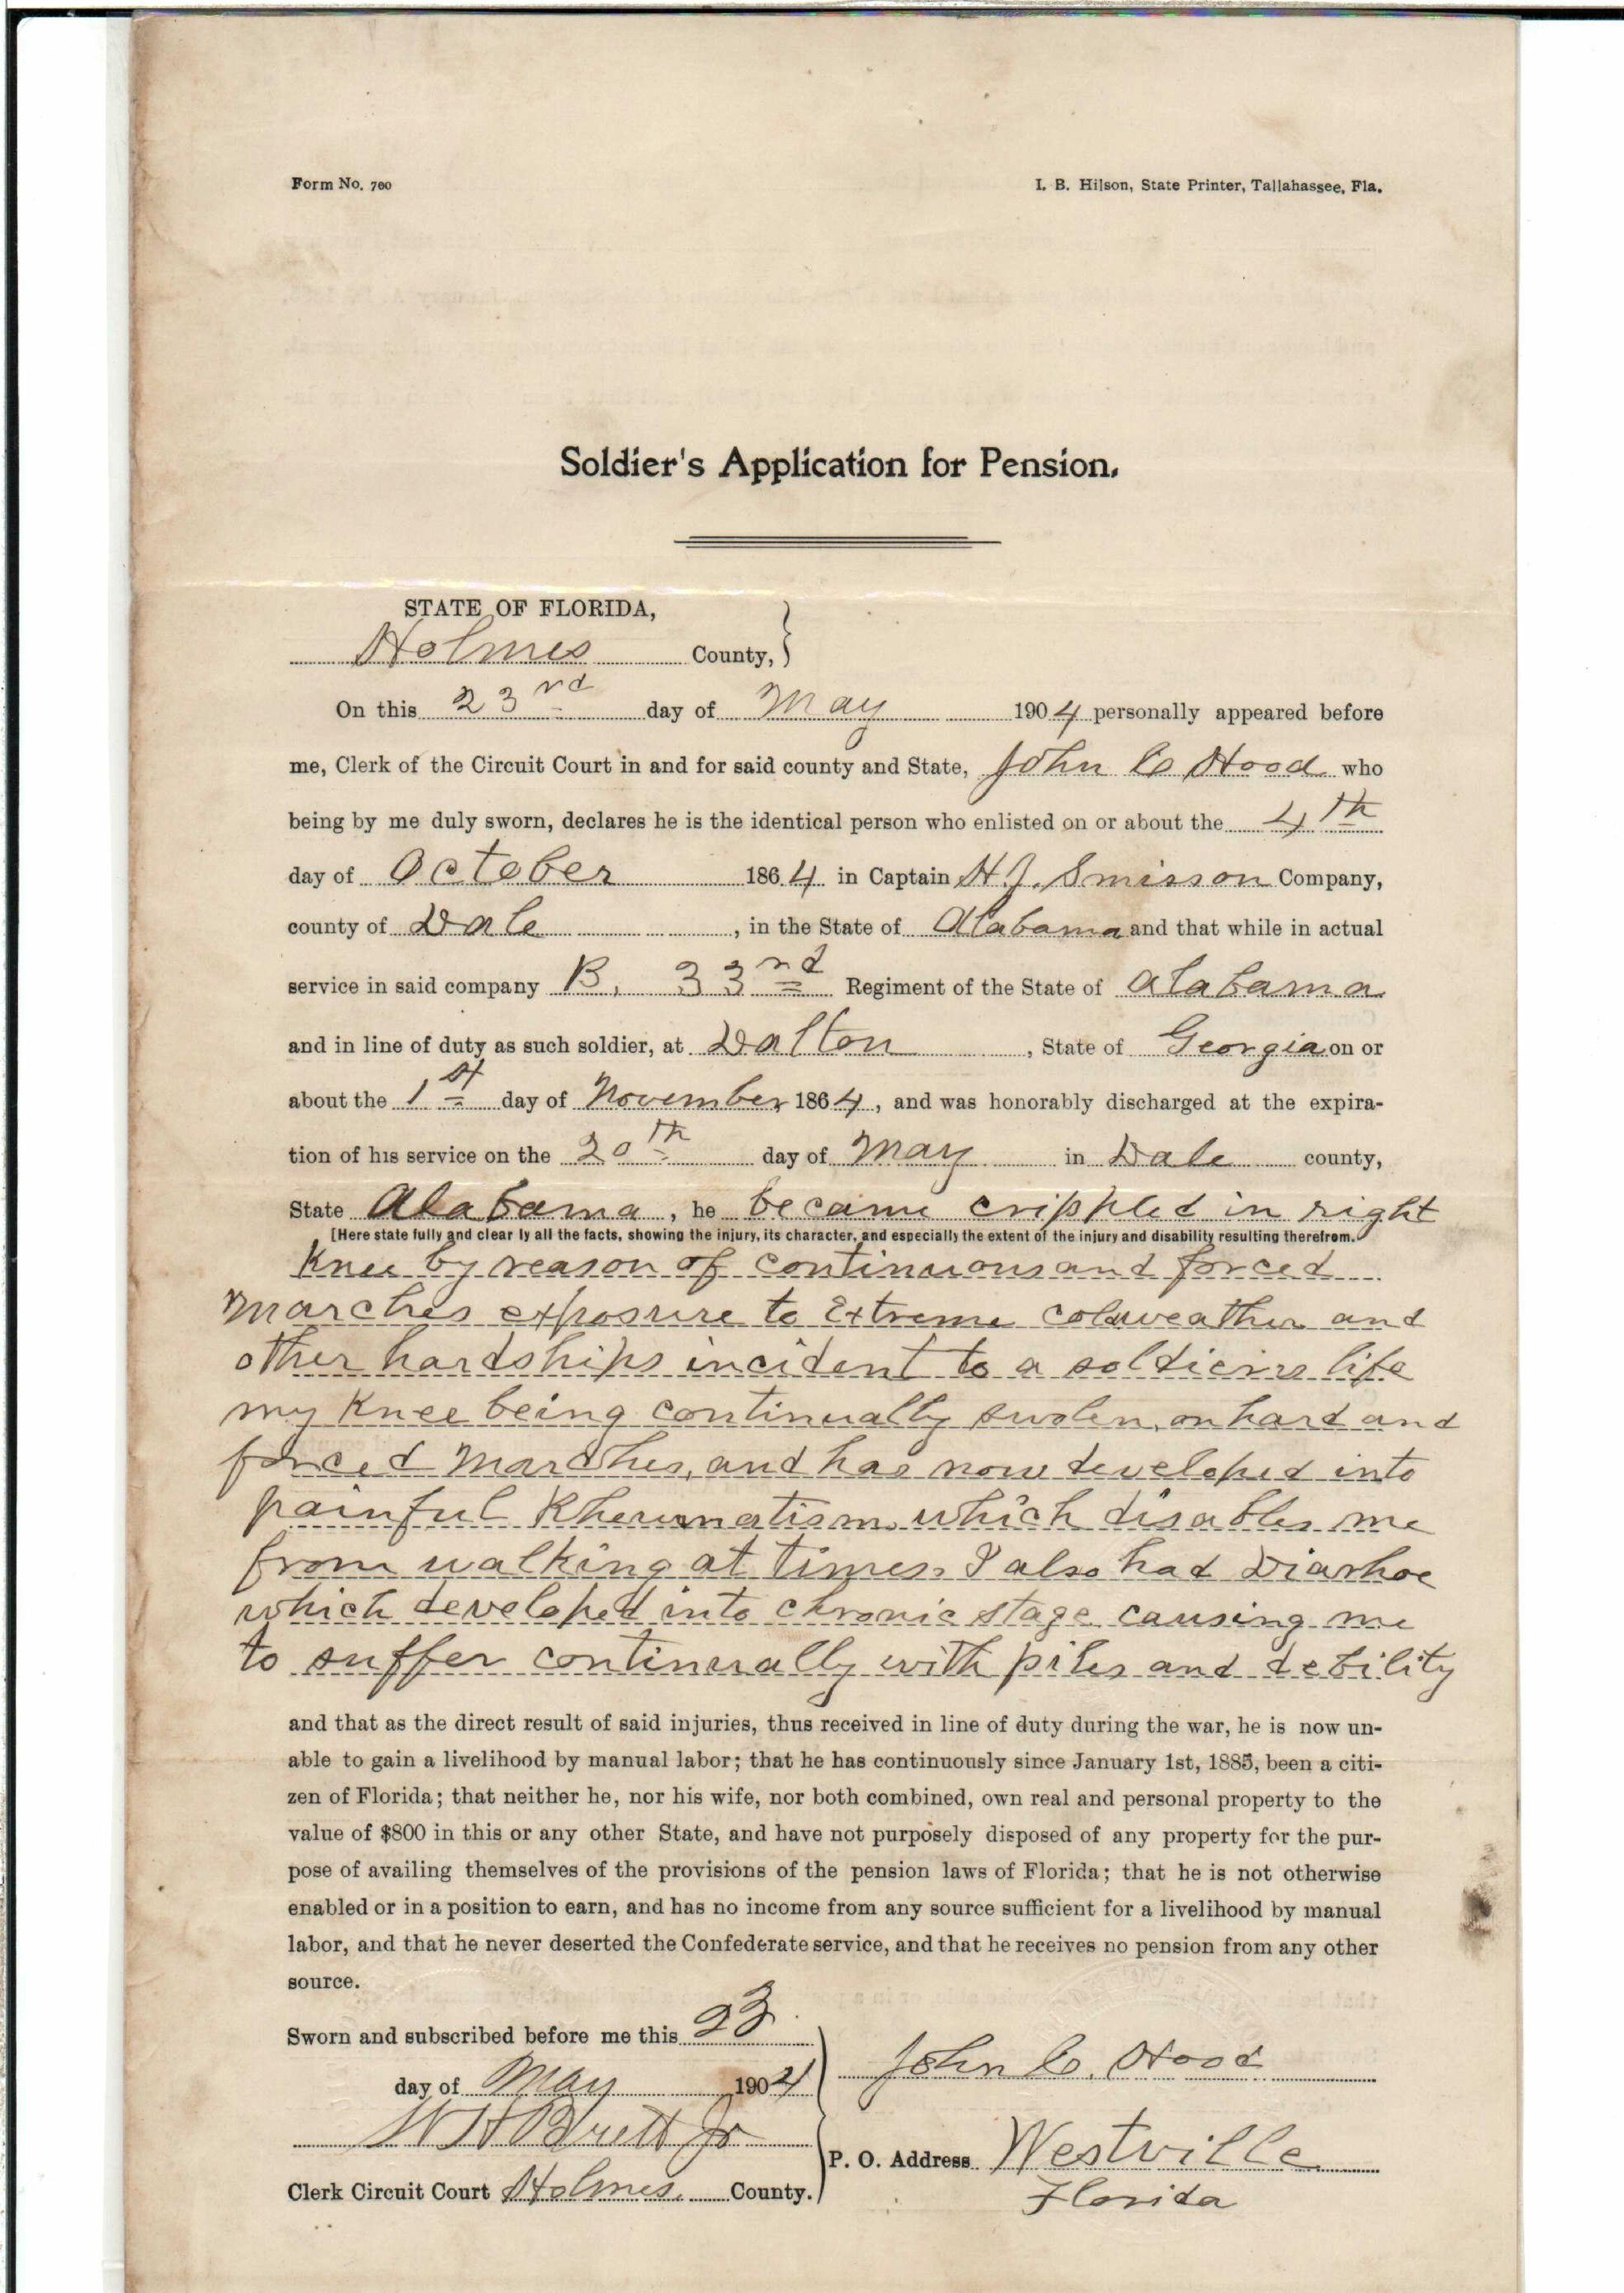 Form No. 700
I. B. Hilson, State Printer, Tallahassee, Fla.
Soldier's Application for Pension.
STATE OF FLORIDA,
Holmes County,
On this 23rd day of May 1904 personally appeared before
me, Clerk of the Circuit Court in and for said county and State, John C Hood who
being by me duly sworn, declares he is the identical person who enlisted on or about the 4th
day of October 1864 in Captain H.J. Smisson Company,
county of Dale, in the State of Alabama and that while in actual
service in said company B, 33rd Regiment of the State of Alabama
and in line of duty as such soldier, at Dalton, State of Georgia on or
about the 1st day of November 1864, and was honorably discharged at the expira-
tion of his service on the 20th day of May in Dale county,
State Alabama, he became crippled in right
[Here state fully and clear ly all the facts, showing the injury, its character, and especially the extent of the injury and disability resulting therefrom.
Knee by reason of continuous and forced
marches exposure to Extreme coldweather and
other hardships incident to a soldiers life
my Knee being continually swolen, on hard and
forced Marches, and has now developed into
painful Rheumatism which disables me
from walking at times. I also had Diarhoe
which developed into chronic stage causing me
to suffer continually with piles and debility
and that as the direct result of said injuries, thus received in line of duty during the war, he is now un-
able to gain a livelihood by manual labor; that he has continuously since January 1st, 1885, been a citi-
zen of Florida; that neither he, nor his wife, nor both combined, own real and personal property to the
value of $800 in this or any other State, and have not purposely disposed of any property for the pur-
pose of availing themselves of the provisions of the pension laws of Florida; that he is not otherwise
enabled or in a position to earn, and has no income from any source sufficient for a livelihood by manual
labor, and that he never deserted the Confederate service, and that he receives no pension from any other
source.
Sworn and subscribed before me this 23
day of May 1904
John C. Hood
W H Brett Jr
P. O. Address Westville
Clerk Circuit Court Holmes County.
Florida